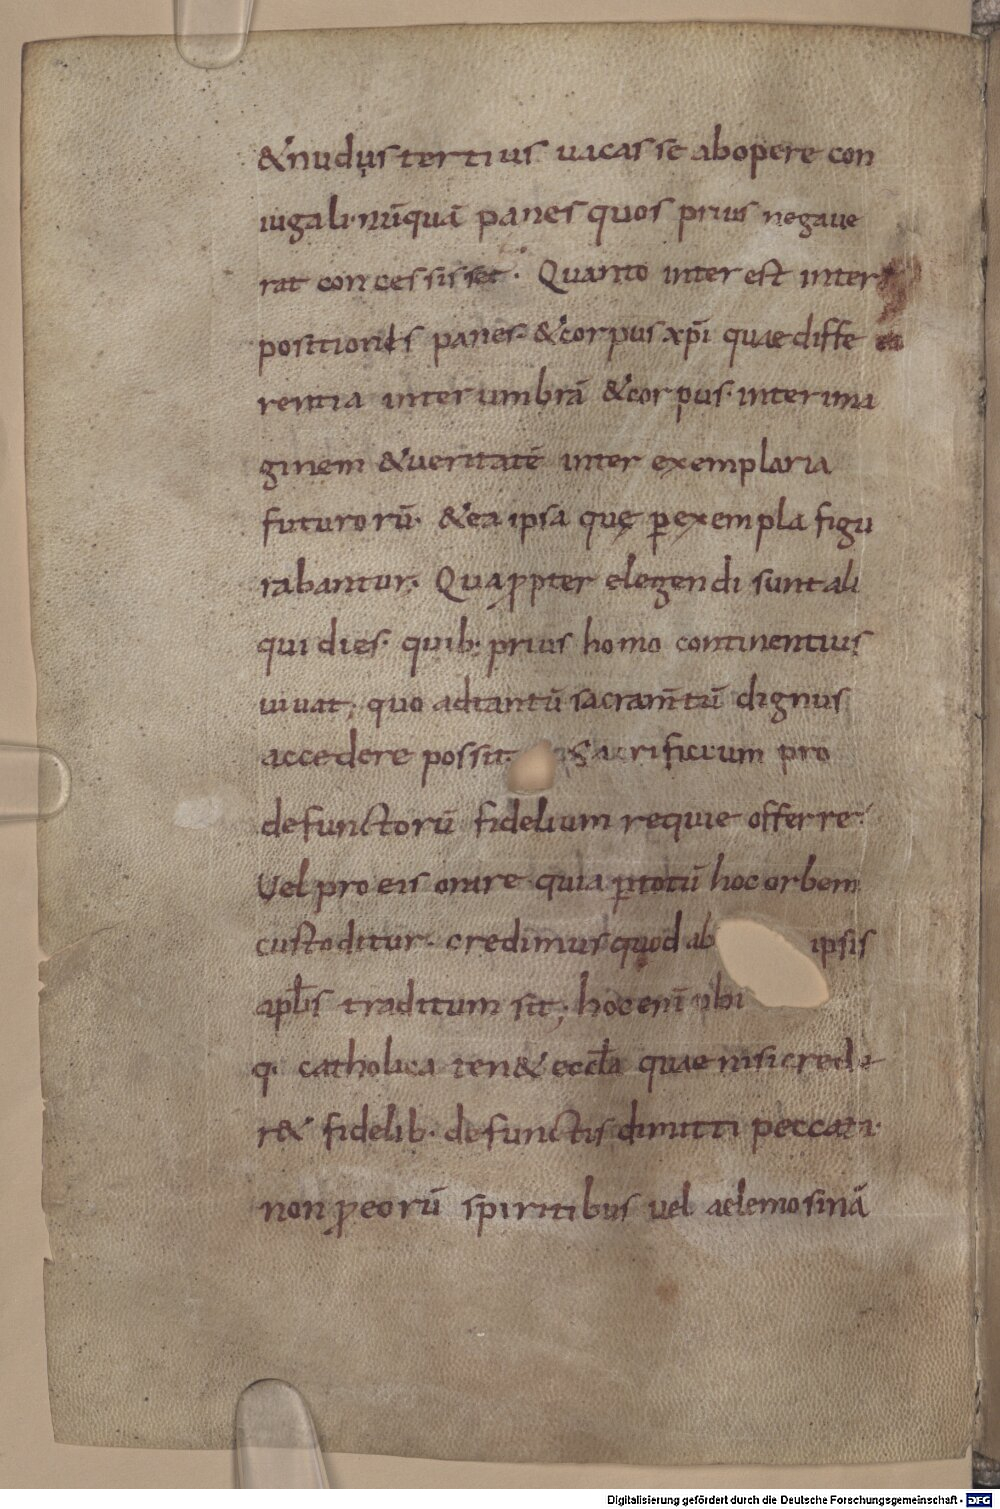 &nudus tertius uacasse abopere con
iugali·nūquā panes quos prius negaue
rat concessisset· Quanto interest inter
positionis panes· &corpus xp̄i quae diffe
rentia inter umbrā &corpus· inter ima
ginem &ueritatē inter exemplaria
futurorū· &ea ipsa quę ꝑexempla figu
rabantur· Quaꝓpter elegendi sunt ali
qui dies· quib; prius homo continentius
uiuat; quo adtantū sacram̄tū dignus
accedere possit· Sacrificium pro
defunctorū fidelium requie offerre·
Uel pro eis orare quia ꝑtotū hoc orbem
custoditur· credimus quod ab ipsis
apl̄is traditum sit; hoc enī ubi
q· catholica ten& eccl̄a quae nisi crede
r& fidelib· defunctis dimitti peccata·
non ꝓeorū spiritibus uel aelemosinā
Digitalisierung gefördert durch die Deutsche Forschungsgemeinschaft - DFG